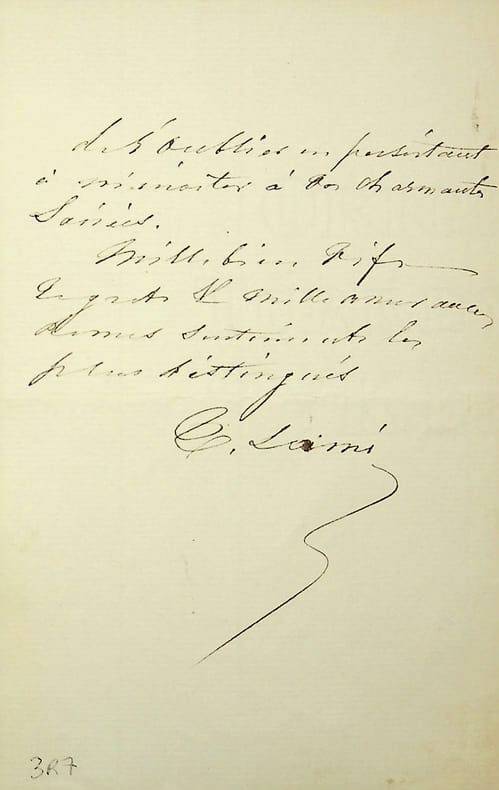 de l'oublier en persistant
à m'inviter à vos charmantes
Soirées.
Mille bien vifs
regrets et mille assurances
de mes sentiments les
plus distingués
E. Lami
3R7